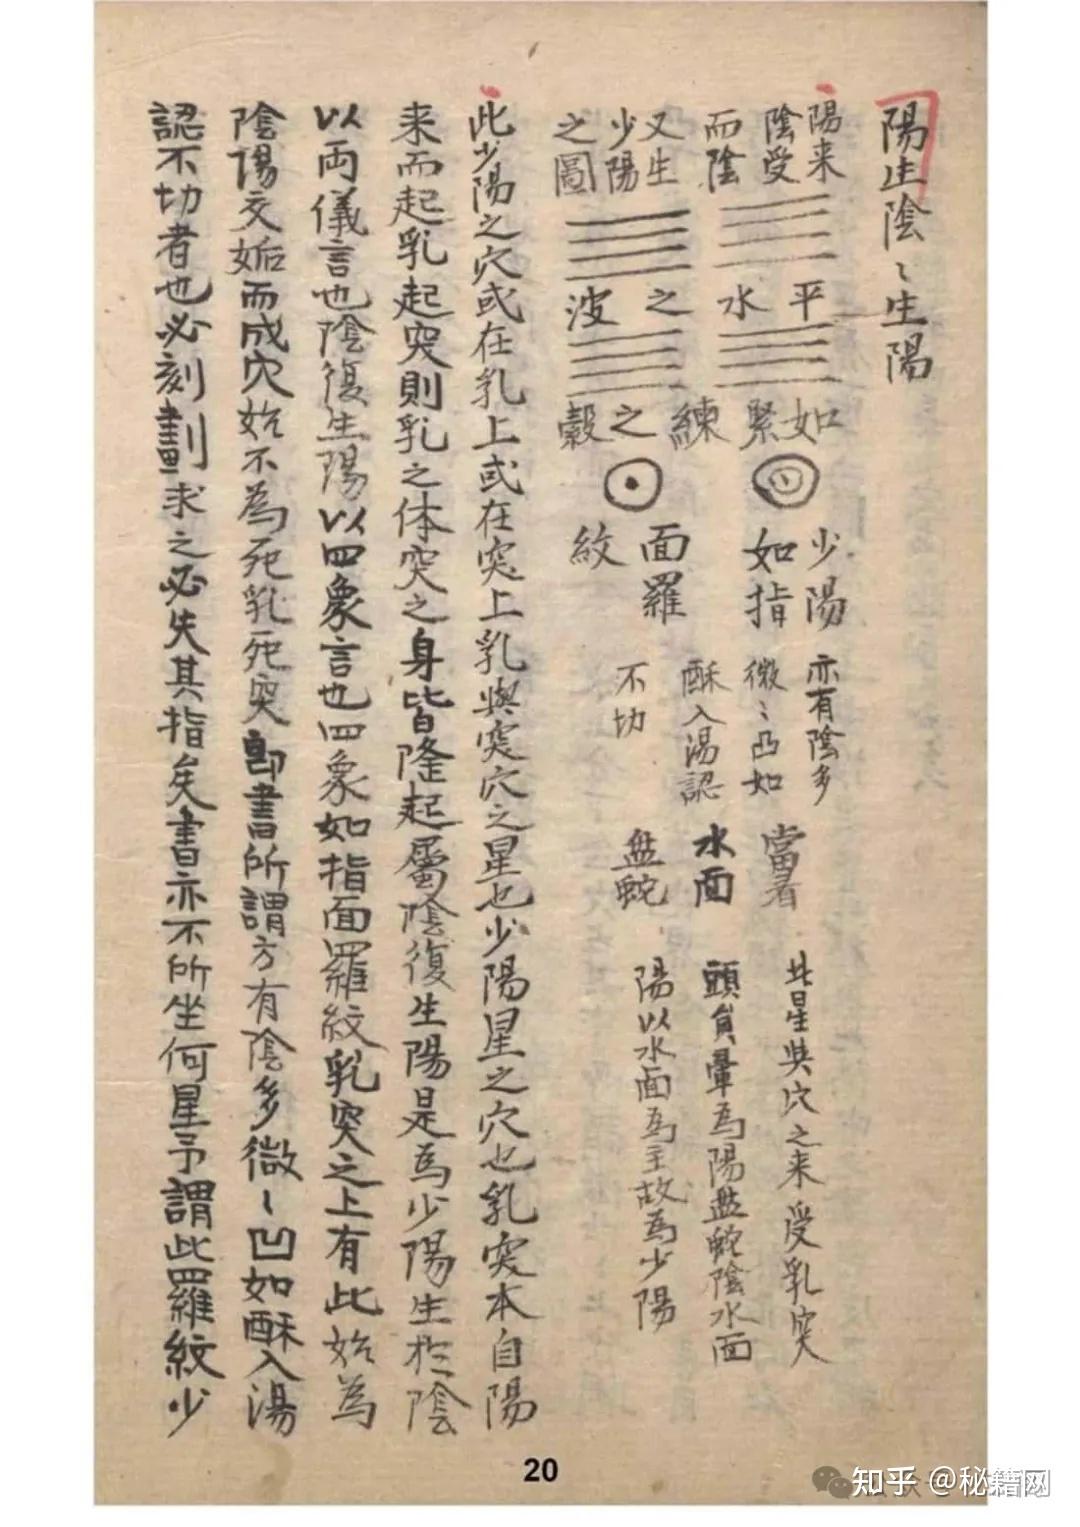 陽生陰〻生陽
陽来
陰受
而陰
又生
少陽
之圖
平水之波
如緊練之縠
少陽
如指
面羅
紋
亦有陰多
微〻凸如
酥入湯認
不切
當看
水面
盤蛇
此星與穴之来受乳突
頭員暈為陽盤蛇陰水面
陽以水面為主故為少陽
此少陽之穴或在乳上或在突上乳與突穴之星也少陽星之穴也乳突本自陽
来而起乳起突則乳之体突之身皆隆起屬陰復生陽是為少陽生於陰
以両儀言也陰復生陽以四象言也四象如指面羅紋乳突之上有此始為
陰陽交姤而成穴始不為死乳死突即書所謂方有陰多微〻凹如酥入湯
認不切者也必刻劃求之必失其指矣書亦不所坐何星予謂此羅紋少
20
知乎 @秘籍网